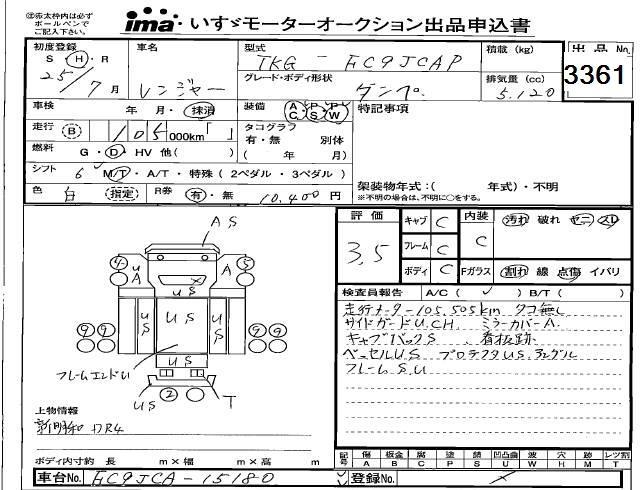 ㊟赤太枠内は必ず
ボールペンで
ご記入下さい。
ima いすゞモーターオークション出品申込書
初度登録 車名 型式 積載(kg) 出品No.
S・H・R レンジャー TKG-FC9JCAP
25/7月 グレード・ボディ形状 排気量(cc) 3361
ダンプ 5,120
車検 年 月・抹消 装備 A/C P/S P/W 特記事項
走行 B 105 000km「 」 タコグラフ
有・無 別体
燃料 G・D・HV 他( ) ( 年 月)
シフト 6 M/T・A/T・特殊(2ペダル・3ペダル) 架装物年式:( 年式)・不明
※不明の場合は、不明に○をする。
色 白 指定 R券 有・無 10,400円
評価 3.5 キャブ C 内装 C 汚れ 破れ ヤニ スレ
フレーム C
ボディ C Fガラス 割れ 線 点傷 イバリ
検査員報告 A/C( ✓ ) B/T( )
走行メーター105,505km タコ無し
サイドガードU.CH. ミラーカバーA.
キャブバックS 看板跡.
ベッセルU.S プロテクタUS.
フレームS.U
AS
4 U A A 5
US
9 9 US US US 9 9
US
フレームエンドU
US 2 T
上物情報
新明和 DR4
ボディ内寸約 長 m×幅 m×高 m
記号 傷A 板金B 腐C 塗P 錆S 凹凸曲U 波W 穴H 跡M レツ割T
車台No. FC9JCA-15180 登録No.